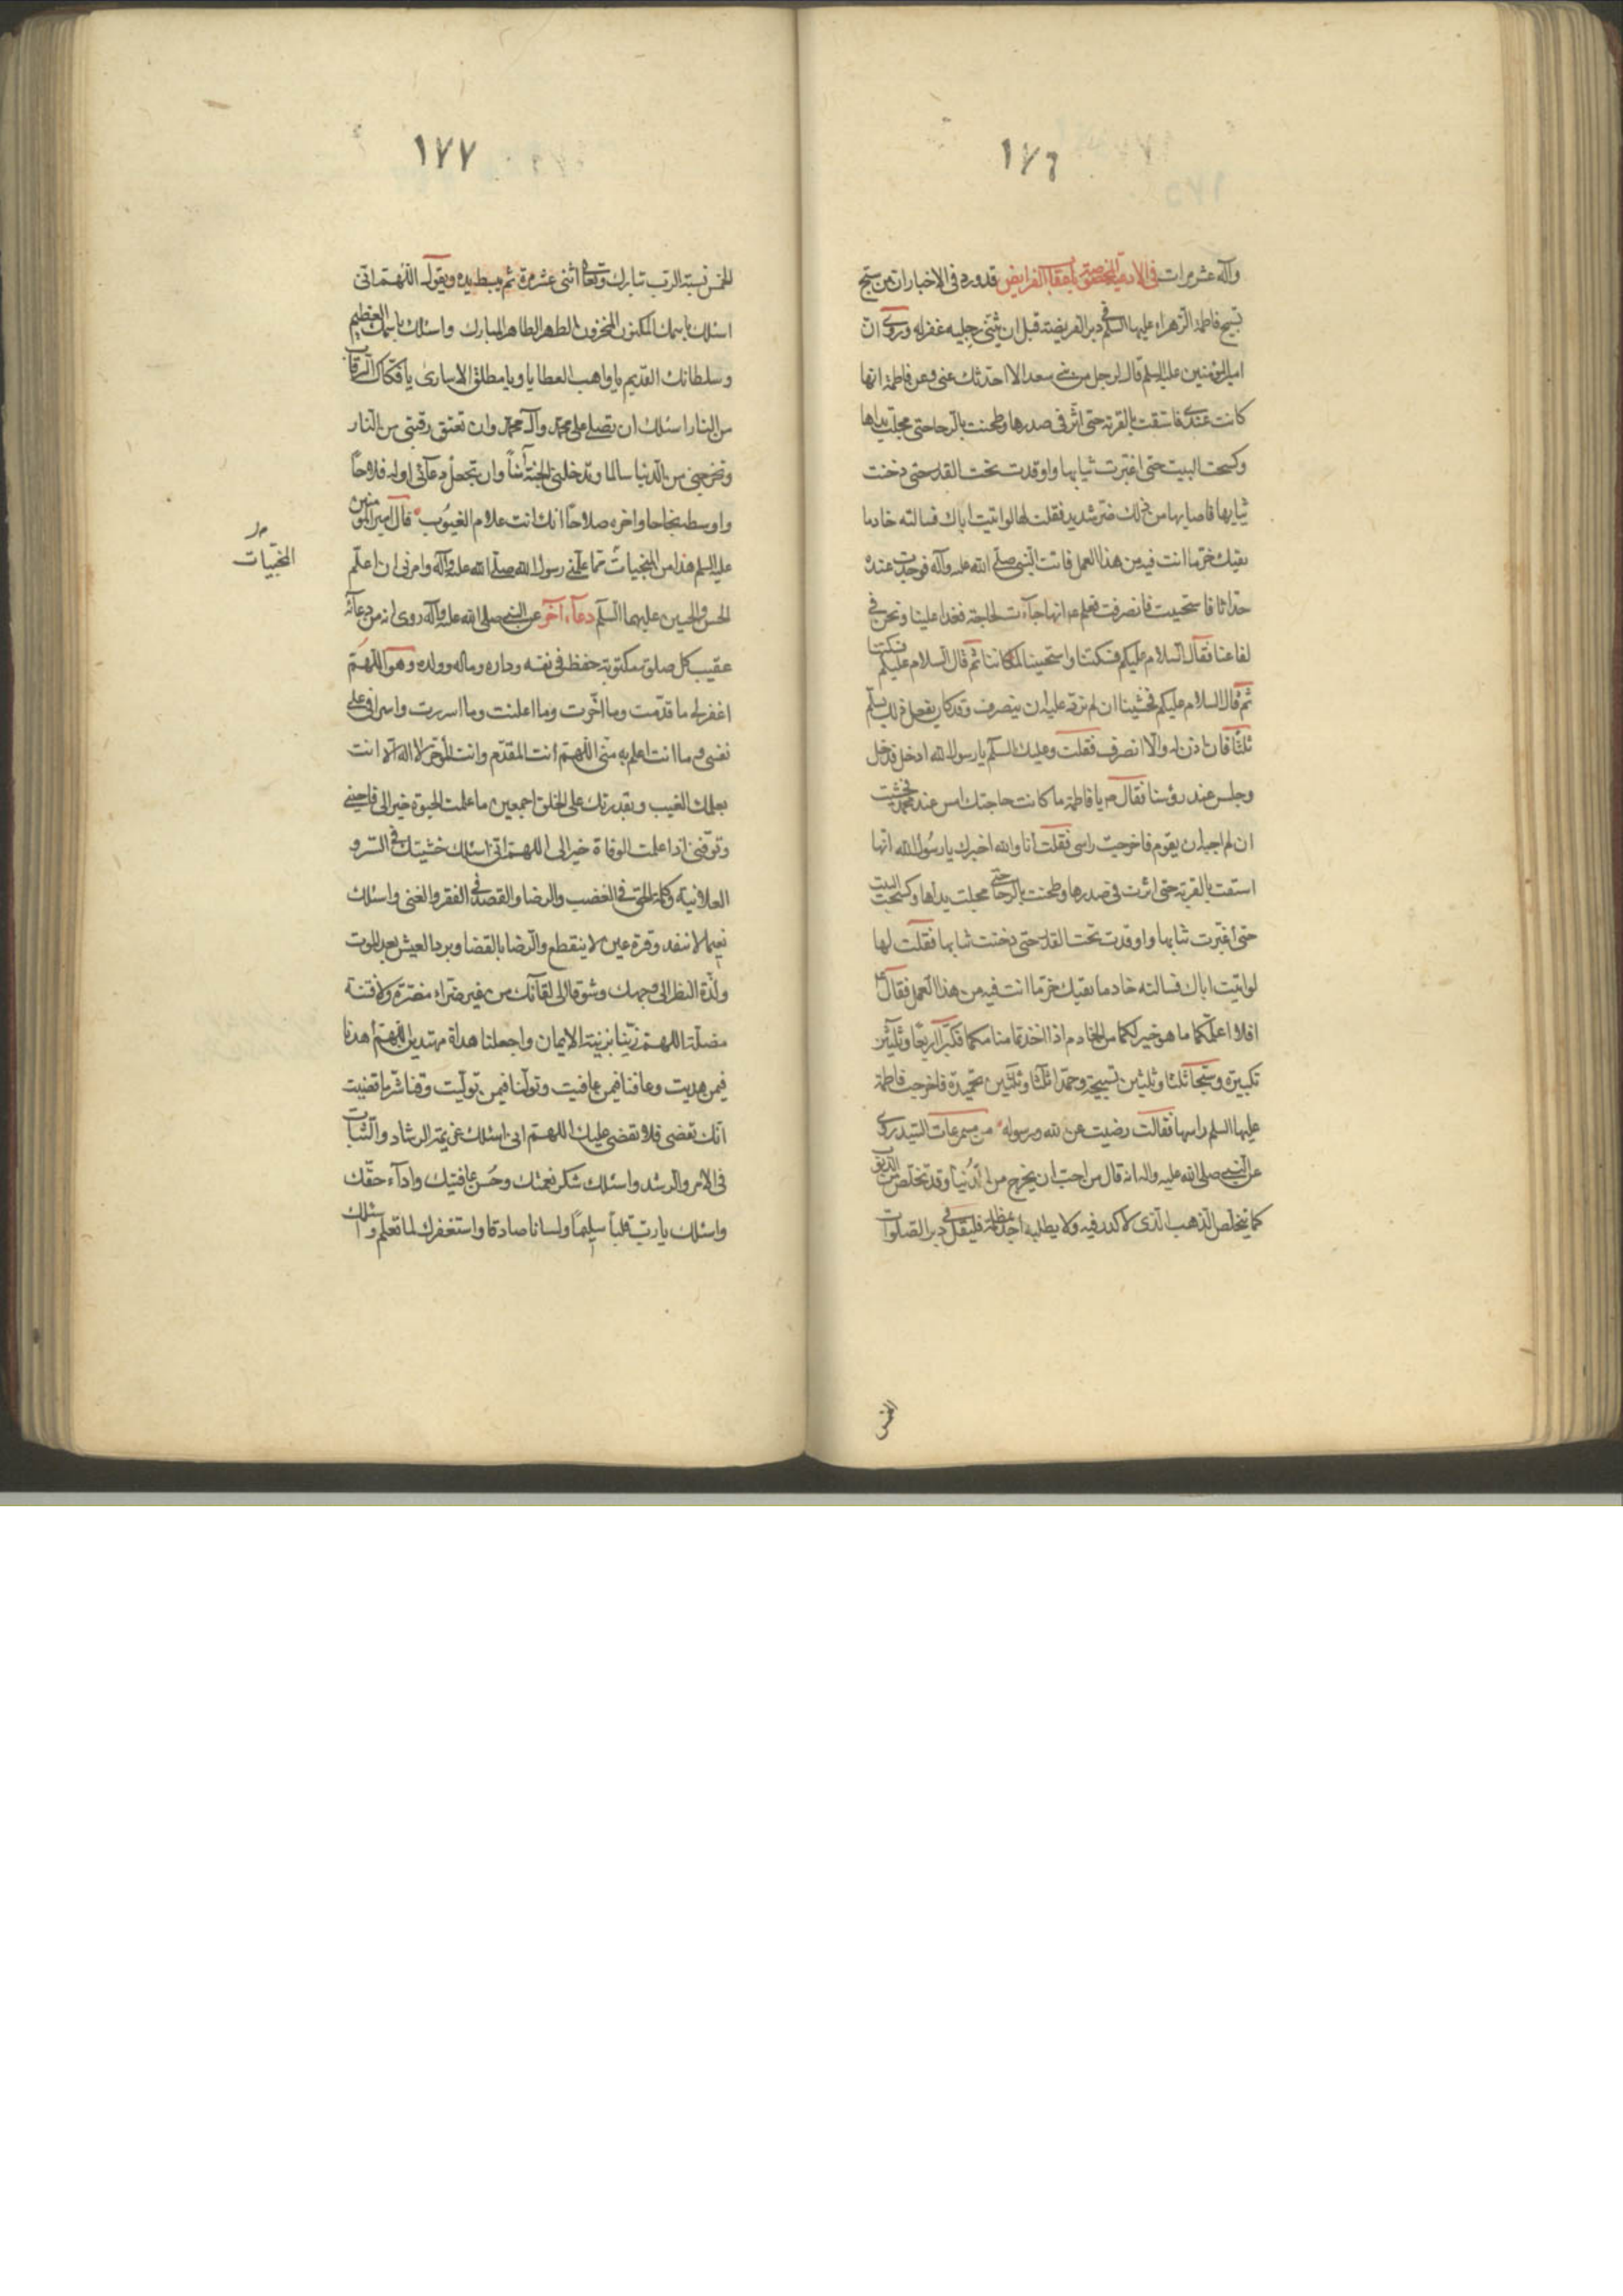 ١٧٦
وآله عشر مرات في الادعية المختصة باعقاب الفرايض قد ورد في الاخبار ان من سبح
تسبيح فاطمة الزهراء عليها السلم في دبر الفريضة قبل ان يثنى رجليه غفر له وروى ان
امير المؤمنين عليه السلم قال لرجل من بني سعد الا احدثك عني وعن فاطمة انها
كانت عندي فاستقت بالقربة حتى اثر في صدرها وطحنت بالرحا حتى مجلت يداها
وكسحت البيت حتى اغبرت ثيابها واوقدت تحت القدر حتى دخنت
ثيابها فاصابها من ذلك ضر شديد فقلت لها لو اتيت اباك فسالته خادما
يقيك حر ما انت فيه من هذا العمل فاتت النبي صلى الله عليه وآله فوجدت عنده
حداثا فاستحييت فانصرفت فعلم ع انها جاءت لحاجة فغدا علينا ونحن في
لفاعنا فقال السلام عليكم فسكتنا واستحيينا لمكاننا ثم قال السلام عليكم فسكتنا
ثم قال السلام عليكم فخشينا ان لم نرد عليه ان ينصرف وقد كان يفعل ذلك يسلم
ثلثا فان اذن له والا انصرف فقلت وعليك السلم يا رسول الله ادخل فدخل
وجلس عند رؤسنا فقال يا فاطمة ما كانت حاجتك امس عند محمد فخشيت
ان لم اجبه ان يقوم فاخرجت راسى فقلت انا والله اخبرك يا رسول الله انها
استقت بالقربة حتى اثرت في صدرها وطحنت بالرحا حتى مجلت يداها وكسحت البيت
حتى اغبرت ثيابها واوقدت تحت القدر حتى دخنت ثيابها فقلت لها
لو اتيت اباك فسالته خادما يقيك حر ما انت فيه من هذا العمل فقال ع
افلا اعلمكما ما هو خير لكما من الخادم اذا اخذتما منامكما فكبرا اربعا وثلثين
تكبيرة وسبحا ثلثا وثلثين تسبيحة وحمدا ثلثا وثلثين تحميدة فاخرجت فاطمة
عليها السلم راسها فقالت رضيت عن الله ورسوله من مسموعات السيد روى
عن النبي صلى الله عليه واله انه قال من احب ان يخرج من الدنيا وقد تخلص من الذنوب
كما يتخلص الذهب الذى لا كدر فيه ولا يطلبه احد بمظلمة فليقل في دبر الصلوات
الخمس
١٧٧
الخمس نسبة الرب تبارك وتعالى اثنى عشر مرة ثم يبسط يده ويقول اللهم انى
اسئلك باسمك المكنون المخزون الطهر الطاهر المبارك واسئلك باسمك العظيم
وسلطانك القديم يا واهب العطايا ويا مطلق الاسارى يا فكاك الرقاب
من النار اسئلك ان تصلي على محمد وآل محمد وان تعتق رقبتى من النار
وتخرجني من الدنيا سالما وتدخلني الجنة آمنا وان تجعل دعائى اوله فلاحا
واوسطه نجاحا واخره صلاحا انك انت علام الغيوب قال امير المؤمنين
عليه السلم هذا من المنجيات مما علمني رسول الله صلى الله عليه وآله وامرنى ان اعلم
المنجيات
الحسن والحسين عليهما السلم دعاء آخر عن النبي صلى الله عليه وآله روى انه من دعا به
عقيب كل صلوة مكتوبة حفظ في نفسه وداره وماله وولده وهو اللهم
اغفر لي ما قدمت وما اخرت وما اعلنت وما اسررت واسرافى على
نفسى وما انت اعلم به منى اللهم انت المقدم وانت المؤخر لا اله الا انت
بعلمك الغيب وبقدرتك على الخلق اجمعين ما علمت الحيوة خيرا لى فاحينى
وتوفنى اذا علمت الوفاة خيرا لى اللهم انى اسئلك خشيتك في السر و
العلانية وكلمة الحق في الغضب والرضا والقصد في الفقر والغنى واسئلك
نعيما لا ينفد وقرة عين لا ينقطع والرضا بالقضا وبرد العيش بعد الموت
ولذة النظر الى وجهك وشوقا الى لقائك من غير ضراء مضرة ولا فتنة
مضلة اللهم زينا بزينة الايمان واجعلنا هداة مهتدين اللهم اهدنا
فيمن هديت وعافنا فيمن عافيت وتولنا فيمن توليت وقنا شر ما قضيت
انك تقضى ولا يقضى عليك اللهم انى اسئلك عزيمة الرشاد والثبات
في الامر والرشد واسئلك شكر نعمتك وحسن عافيتك واداء حقك
واسئلك يا رب قلبا سليما ولسانا صادقا واستغفرك لما تعلم واسئلك